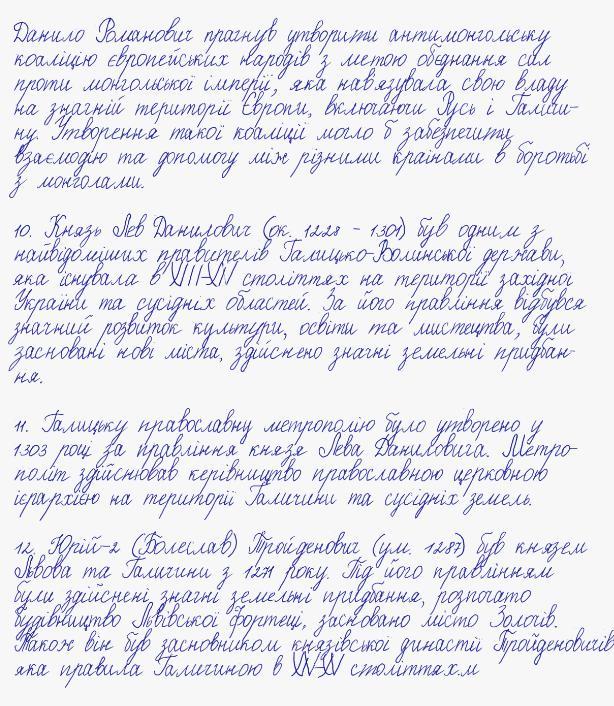 Данило Романович прагнув утворити антимонгольську
коаліцію європейських народів з метою обєднання сил
проти монгольської імперії, яка нав'язувала свою владу
на значній території Європи, включаючи Русь і Галичи-
ну. Утворення такої коаліції могло б забезпечити
взаємодію та допомогу між різними країнами в боротьбі
з монголами.
10. Князь Лев Данилович (ок. 1228 - 1301) був одним з
найвідоміших правителів Галицько-Волинської держави,
яка існувала в XIII-XIV століттях на території західної
України та сусідніх областей. За його правління відбувся
значний розвиток культури, освіти та мистецтва, були
засновані нові міста, здійснено значні земельні придбан-
ня.
11. Галицьку православну метрополію було утворено у
1303 році за правління князя Лева Даниловича. Метро-
політ здійснював керівництво православною церковною
ієрархією на території Галичини та сусідніх земель.
12. Юрій-2 (Болеслав) Тройденович (ум. 1287) був князем
Львова та Галичини з 1271 року. Під його правлінням
були здійснені значні земельні придбання, розпочато
будівництво Львівської фортеці, засновано місто Зологів.
Також він був засновником князівської династії Тройденовичів
яка правила Галичиною в XIV-XV століттях.м